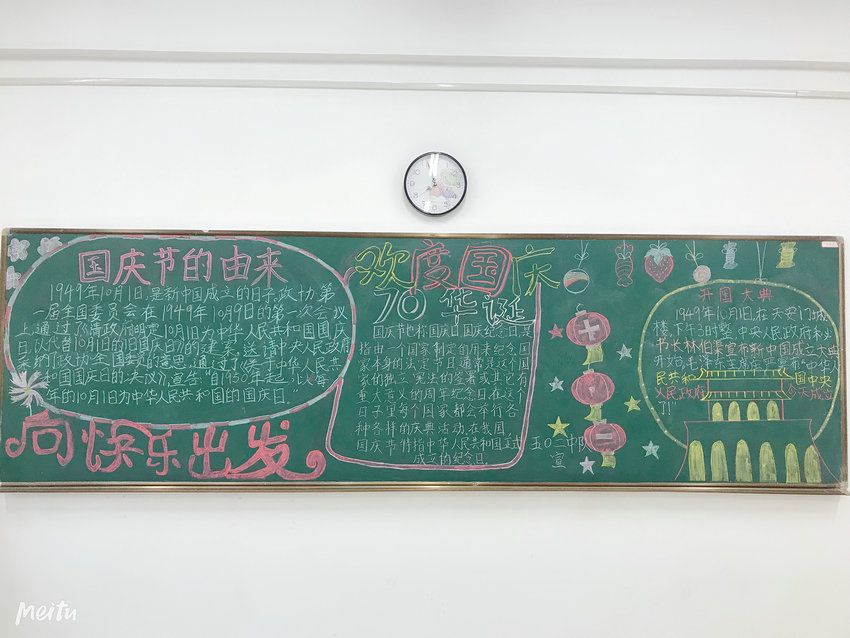 国庆节的由来
1949年10月1日,是新中国成立的日子,政协第
一届全国委员会在1949年10月9日的第一次会议
上,通过了《请政府明定10月1日为中华人民共和国国庆
日,以代替10月10日的旧国庆日》的建议,送请中央人民政府
宣告"自1950年起,以每
年的10月1日为中华人民共和国的国庆日。"
向快乐出发
欢度国庆
70华诞
国庆节也称国庆日、国庆纪念日,是
指由一个国家制定的用来纪念国
家本身的法定节日,通常是这个国
家的独立、宪法的签署或其它有
重大意义的周年纪念日,在这个
日子里每个国家都会举行各
种各样的庆典活动,在我国,
国庆节特指中华人民共和国正式
成立的纪念日。
五〇二中队
宣
开国大典
1949年10月1日,在天安门城
楼,下午3时整,中央人民政府秘
书长林伯渠宣布新中国成立大典
民共和国中央
人民政府今天成立
了!"
Meitu